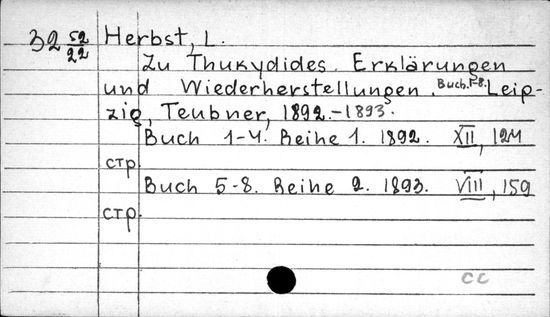 32 52/22 Herbst, L.
Zu Thukydides. Erklärungen
und Wiederherstellungen. Buch. 1-8. Leip-
zig, Teubner, 1892.-1893.
Buch 1-4. Reihe 1. 1892. XII, 124
стр.
Buch 5-8. Reihe 2. 1893. VIII, 159
стр.
сс